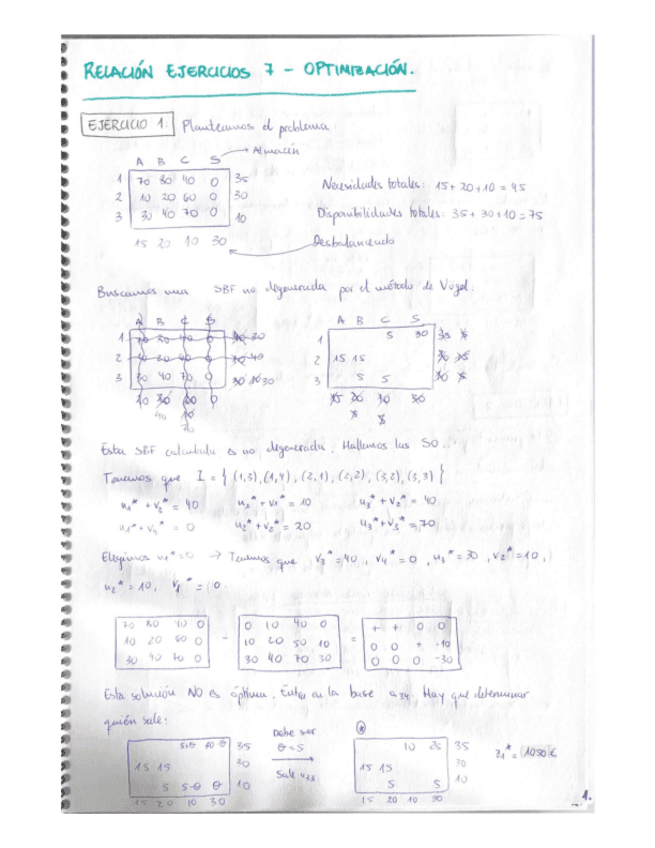 RELACIÓN EJERCICIOS 7 - OPTIMIZACIÓN.
EJERCICIO 1: Planteamos el problema:
A B C S → Almacén
1 70 80 40 0 35
2 10 20 60 0 30
3 30 40 70 0 10
15 20 10 30
Necesidades totales: 15+20+10 = 45
Disponibilidades totales: 35+30+10 = 75
Desbalanceado
Buscamos una SBF no degenerada por el método de Vogel.
A B C S
1
2
3
A B C S
1 5 30
2 15 15
3 5 5
Esta SBF calculada es no degenerada. Hallemos las
Tenemos que I = { (1,3), (1,4), (2,1), (2,2), (3,2), (3,3) }
u2* + v1* = 10 u3* + v2* = 40
u1* + v4* = 0 u2* + v2* = 20 u3* + v3* = 70
Elegimos u1* = 0 → Tenemos que v3* = 40, v4* = 0, u3* = 30, v2* = 10,
u2* = 10, v1* = 0.
70 80 40 0
10 20 60 0
30 40 70 0
-
0 10 40 0
10 20 50 10
30 40 70 30
=
+ + 0 0
0 0 + -10
0 0 0 -30
Esta solución NO es óptima. Entra en la base a34. Hay que determinar
quién sale:
35
15 15 30
5 5-θ θ 10
15 20 10 30
Debe ser
θ = 5
Sale
10 25 35
15 15 30
5 5 10
15 20 10 30
z1* = 1050 €
1.